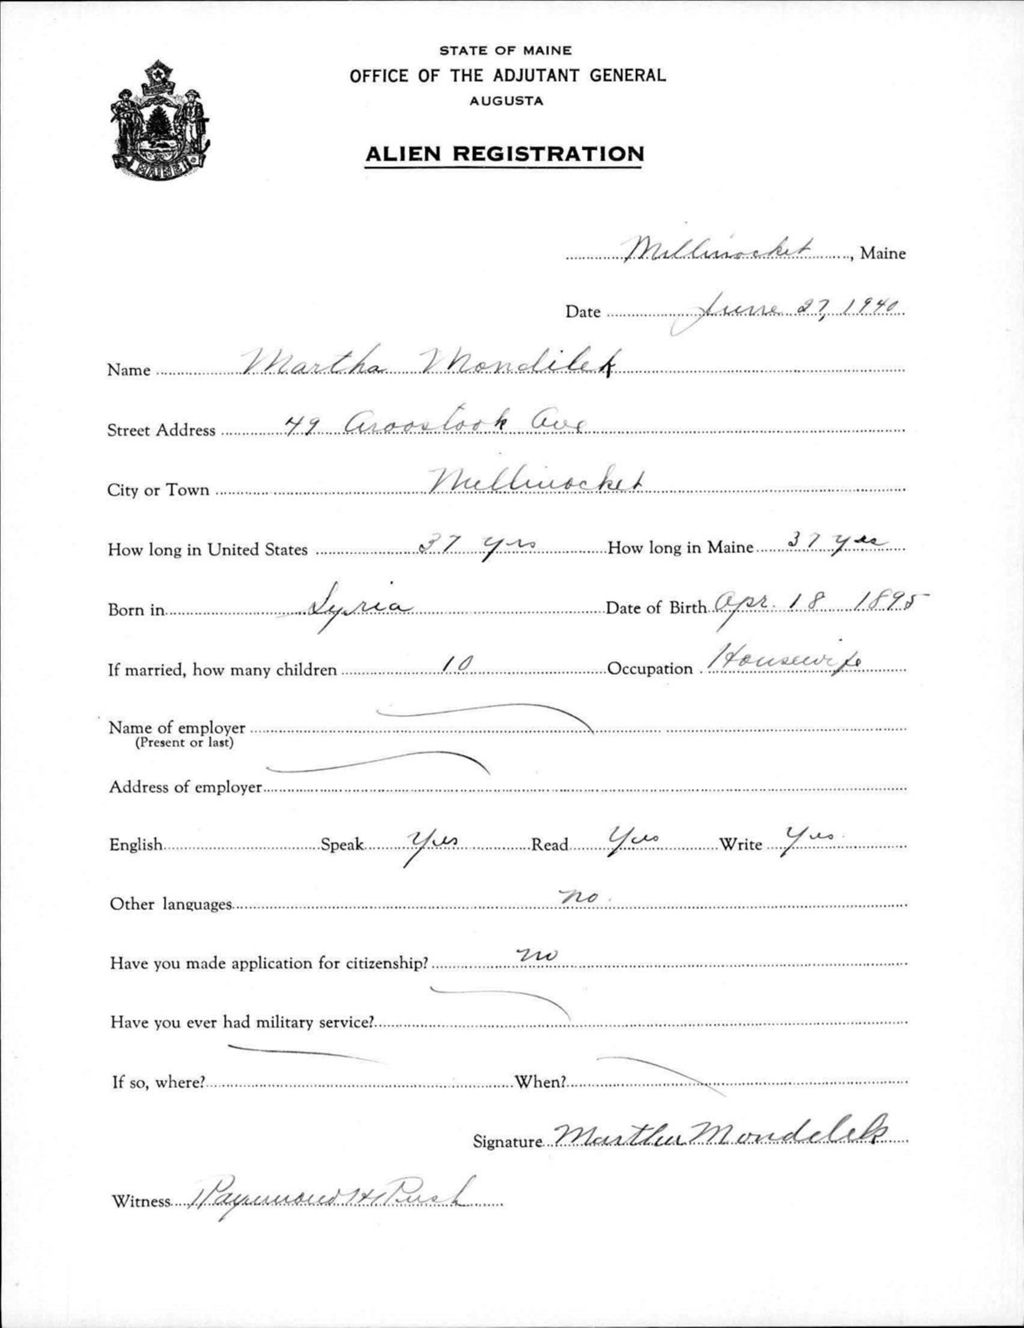 STATE OF MAINE
OFFICE OF THE ADJUTANT GENERAL
AUGUSTA
ALIEN REGISTRATION
Millinocket, Maine
Date June 27, 1940
Name Martha Mondilek
Street Address 49 Aroostook Ave
City or Town Millinocket
How long in United States 37 yrs How long in Maine 37 yrs
Born in Syria Date of Birth Apr. 18 1895
If married, how many children 10 Occupation Housewife
Name of employer
(Present or last)
Address of employer
English Speak Yes Read Yes Write Yes
Other languages no.
Have you made application for citizenship? no
Have you ever had military service?
If so, where? When?
Signature Martha Mondelek
Witness Raymond H Rush